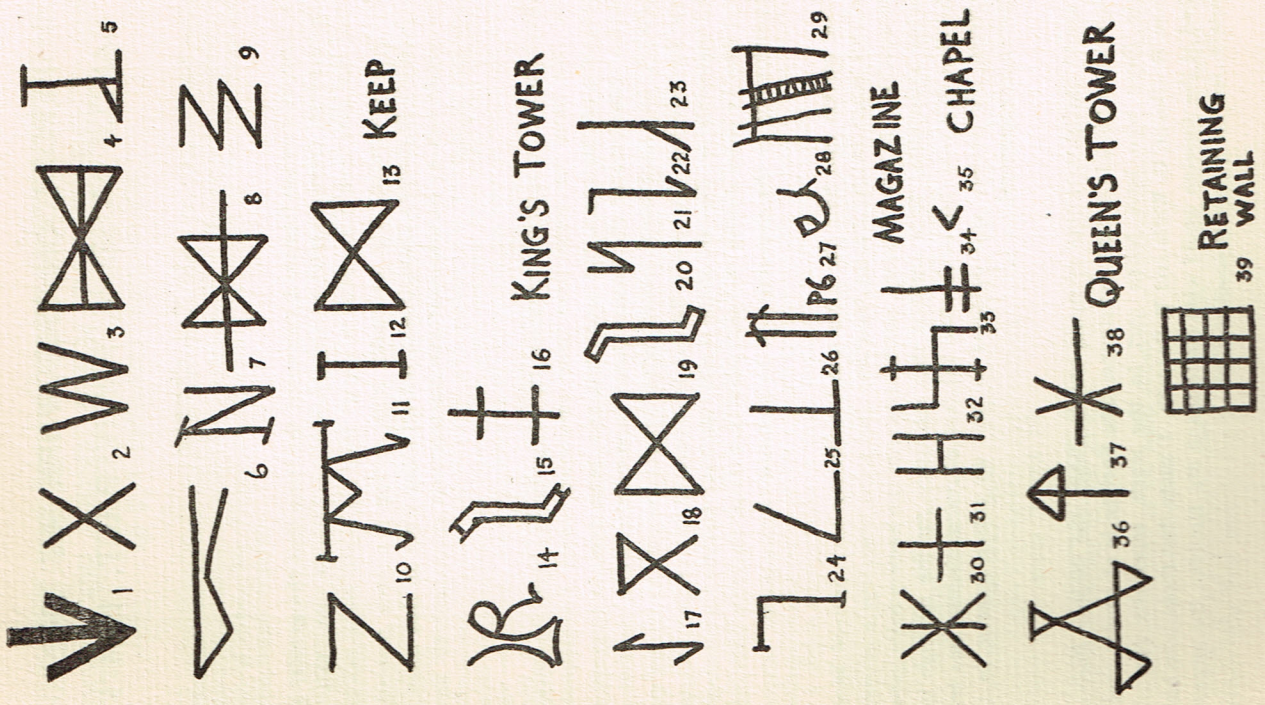 1 2 3 4 5
6 7 8 9
10 11 12 13 KEEP
14 15 16 KING'S TOWER
17 18 19 20 21 22 23
24 25 26 P6 27 28 29
MAGAZINE
30 31 32 33 34 35 CHAPEL
36 37 38 QUEEN'S TOWER
39 RETAINING
WALL